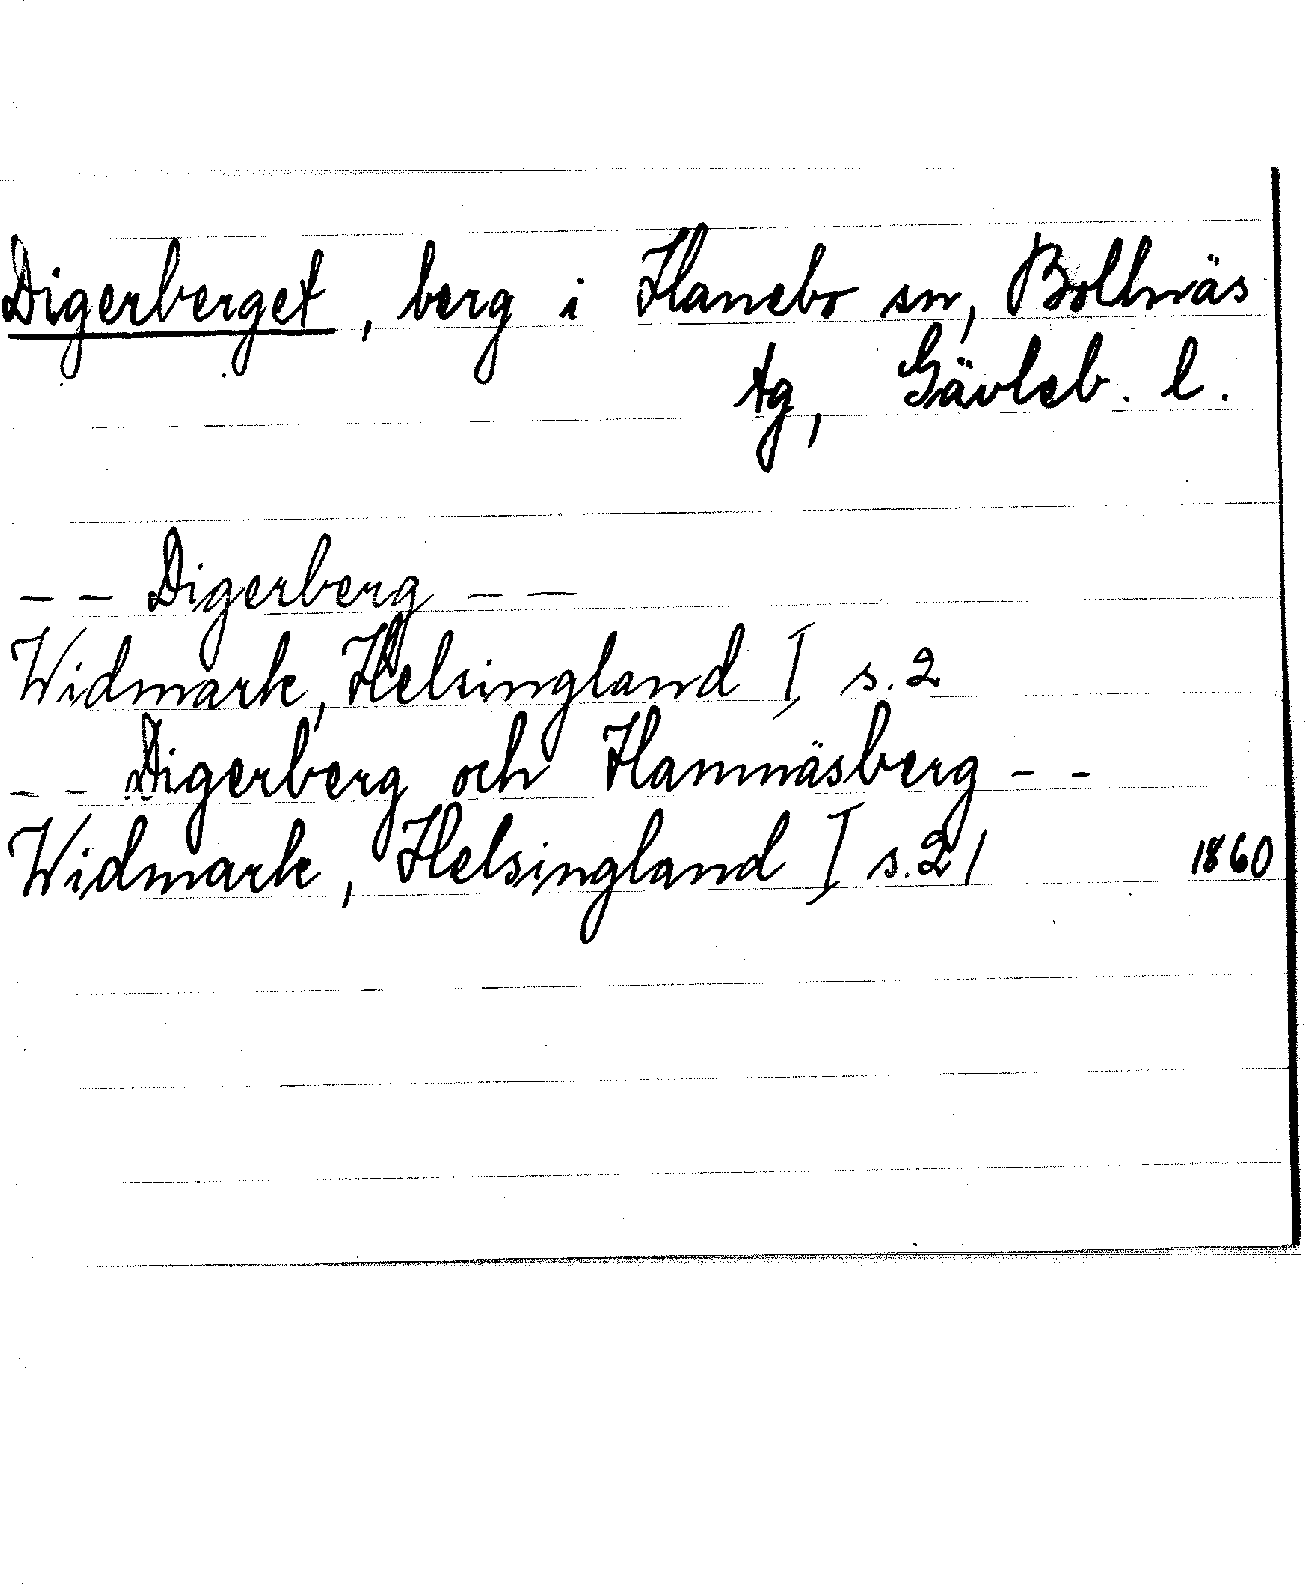 Digerberget, berg i Hanebo sn, Bollnäs
tg, Gävleb. l.
-- Digerberg --
Widmark, Helsingland I s.2
-- Digerberg och Hamnäsberg --
Widmark, Helsingland I s.21 1860